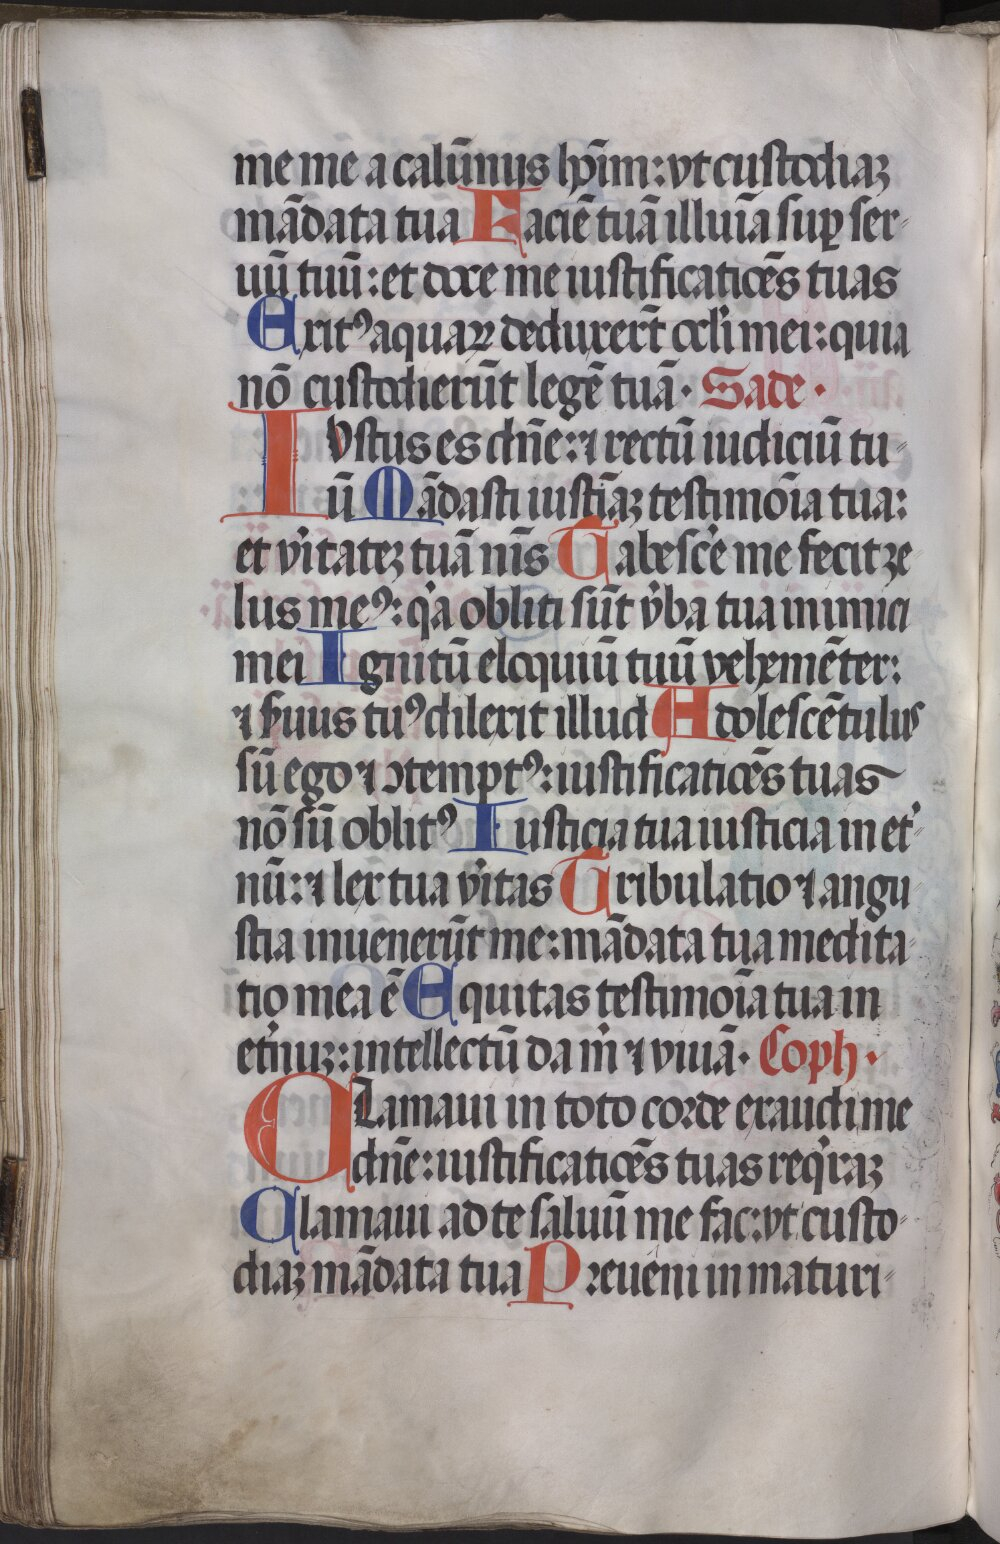 me me a calūnijs hoīm: vt custodiaꝫ
mādata tua Faciē tuā illuīa suꝑ ser-
uū tuū: et doce me iustificatiōēs tuas
Exitꝰ aquaꝝ deduxerūt ocl'i mei: quia
nō custodierūt legē tuā. Sade.
IVstus es dn̄e: ⁊ rectū iudiciū tu-
ū Mādasti iustīaꝫ testimoīa tua:
et v̾itateꝫ tuā nīs Tabesc̾e me fecit ze
lus meꝰ: q̾a obliti sūt v̾ba tua inimici
mei Ignitū eloquiū tuū vehemēter:
⁊ s̾uus tuꝰ dilexit illud Adolescētulus
sū ego ⁊ ↄtemptꝰ: iustificatiōēs tuas
nō sū oblitꝰ Iusticia tua iusticia in et̾-
nū: ⁊ lex tua v̾itas Tribulatio ⁊ angu
stia inuenerūt me: mādata tua medita-
tio mea ē Equitas testimoīa tua in
et̾nuꝫ: intellectū da m̄ ⁊ viuā. Coph.
CLamaui in toto corde exaudi me
dn̄e: iustificatiōēs tuas req̾raꝫ
Clamaui ad te saluū me fac: vt custo-
diaꝫ mādata tua Preuēni in maturi-